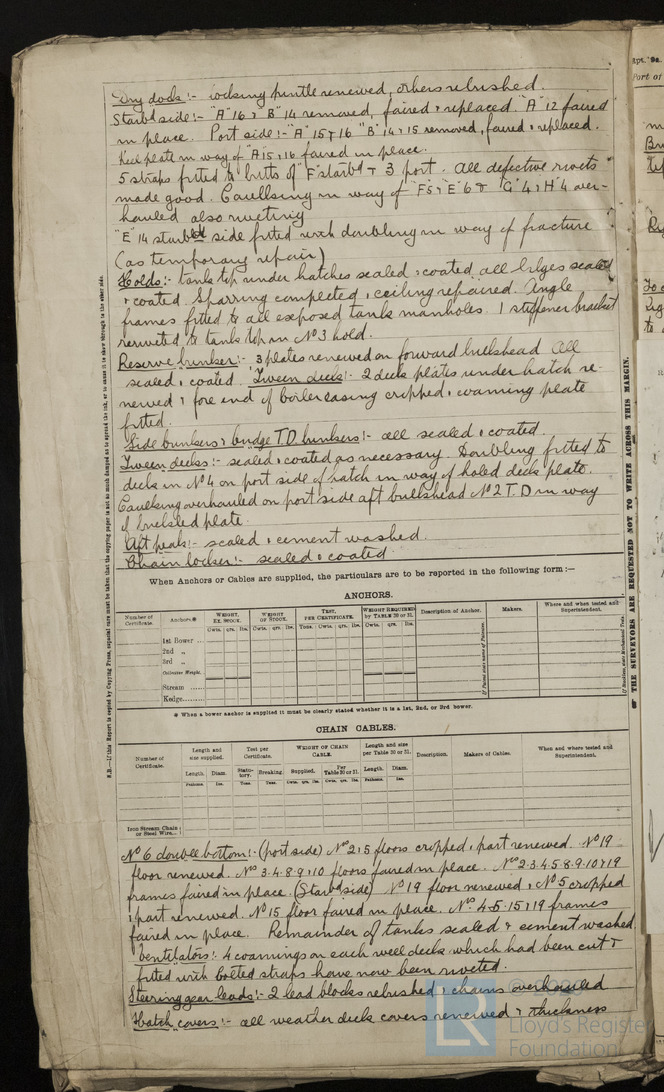 Dry dock:- locking pintle renewed, others rebushed.
Starbd side:- "A" 16 & "B" 14 removed, faired & replaced. "A" 12 faired
in place. Port side:- "A" 15 & 16 "B" 14 & 15 removed, faired & replaced.
Keel plate in way of "A" 15 & 16 faired in place.
5 straps fitted to butts of "F" starbd & 3 port. All defective rivets
made good. Caulking in way of "F" 5 & "E" 6 & "G" 4 & "H" 4 over-
hauled also riveting
"E" 14 starbd side fitted with doubling in way of fracture
(as temporary repair)
Holds:- tank top under hatches scaled & coated, all bilges scaled
& coated. Sparring completed & ceiling repaired. Angle
frames fitted to all exposed tank manholes. 1 stiffener bracket
reriveted to tank top in No 3 hold.
Reserve bunker:- 3 plates renewed on forward bulkhead All
scaled & coated. Tween deck:- 2 deck plates under hatch re-
newed & fore end of boiler casing cropped & coaming plate
fitted.
Side bunkers & bridge T.D. bunkers:- all scaled & coated.
Tween decks:- scaled & coated as necessary. Doubling fitted to
deck in No 4 on port side of hatch in way of holed deck plate.
Caulking overhauled on port side aft bulkhead No 2 T.D in way
of buckled plate.
Aft peak:- scaled & cement washed.
Chain locker:- scaled & coated.
When Anchors or Cables are supplied, the particulars are to be reported in the following form :—
ANCHORS.
Number of Certificate. Anchors.* WEIGHT. EX. STOCK. WEIGHT OF STOCK. TEST, PER CERTIFICATE. WEIGHT REQUIRED by TABLE 30 or 31. Description of Anchor. Makers. Where and when tested and Superintendent.
Cwts. qrs. lbs. Cwts. qrs. lbs. Tons. Cwts. qrs. lbs. Cwts. qrs. lbs.
1st Bower ..
2nd „
3rd „
Collective Weight.
Stream ......
Kedge.........
* When a bower anchor is supplied it must be clearly stated whether it is a 1st, 2nd, or 3rd bower.
CHAIN CABLES.
Number of Certificate. Length and size supplied. Test per Certificate. WEIGHT OF CHAIN CABLE. Length and size per Table 30 or 31. Description. Makers of Cables. When and where tested and Superintendent.
Length. Diam. Statutory. Breaking. Supplied. Per Table 30 or 31. Length. Diam.
Fathoms. Ins. Tons. Tons. Cwts. qrs. lbs. Cwts. qrs. lbs. Fathoms. Ins.
Iron Stream Chain or Steel Wire...
No 6 double bottom:- (port side) Nos 2 & 5 floors cropped & part renewed. No 19
floor renewed. Nos 3.4.8.9 & 10 floors faired in place. Nos 2.3.4.5.8.9.10 & 19
frames faired in place. (Starbd side) No 19 floor renewed & No 5 cropped
& part renewed. No 15 floor faired in place. Nos 4.5.15 & 19 frames
faired in place. Remainder of tanks scaled & cement washed.
Ventilators:- 4 coamings on each well deck which had been cut &
fitted with bolted straps have now been riveted.
Steering gear leads:- 2 lead blocks rebushed & chains overhauled
Hatch covers:- all weather deck covers renewed & thickness
THE SURVEYORS ARE REQUESTED NOT TO WRITE ACROSS THIS MARGIN.
Rpt. 9a.
Port of
LR
Lloyd's Register
Foundation